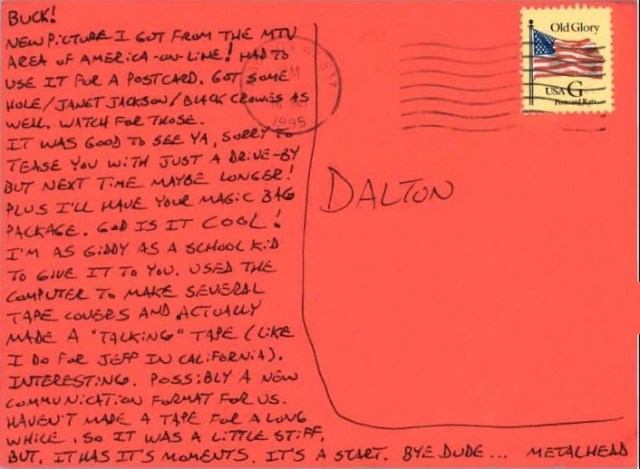 BUCK!
NEW PICTURE I GOT FROM THE MTV
AREA OF AMERICA-ON-LINE! HAD TO
USE IT FOR A POSTCARD. GOT SOME
HOLE/JANET JACKSON/BLACK CROWES AS
WELL. WATCH FOR THOSE.
IT WAS GOOD TO SEE YA, SORRY TO
TEASE YOU WITH JUST A DRIVE-BY
BUT NEXT TIME MAYBE LONGER!
PLUS I'LL HAVE YOUR MAGIC BAG
PACKAGE. GOD IS IT COOL!
I'M AS GIDDY AS A SCHOOL KID
TO GIVE IT TO YOU. USED THE
COMPUTER TO MAKE SEVERAL
TAPE COVERS AND ACTUALLY
MADE A "TALKING" TAPE (LIKE
I DO FOR JEFF IN CALIFORNIA).
INTERESTING. POSSIBLY A NEW
COMMUNICATION FORMAT FOR US.
HAVEN'T MADE A TAPE FOR A LONG
WHILE, SO IT WAS A LITTLE STIFF.
BUT, IT HAS IT'S MOMENTS. IT'S A START. BYE DUDE... METALHEAD
DALTON
Old Glory
USA G
Postcard Rate
1995